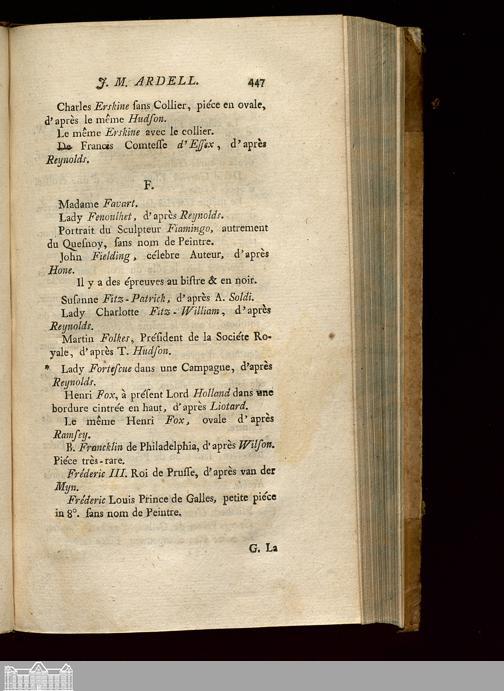 J. M. ARDELL. 447
Charles Erskine ſans Collier, piéce en ovale,
d'après le même Hudſon.
Le même Erskine avec le collier.
De Francis Comteſſe d'Eſſex, d'après
Reynolds.
F.
Madame Favart.
Lady Fenoulhet, d'après Reynolds.
Portrait du Sculpteur Fiamingo, autrement
du Queſnoy, ſans nom de Peintre.
John Fielding, célebre Auteur, d'après
Hone.
Il y a des épreuves au biſtre & en noir.
Suſanne Fitz-Patrick, d'après A. Soldi.
Lady Charlotte Fitz-William, d'après
Reynolds.
Martin Folkes, Préſident de la Sociéte Ro-
yale, d'après T. Hudſon.
* Lady Forteſcue dans une Campagne, d'après
Reynolds.
Henri Fox, à préſent Lord Holland dans une
bordure cintrée en haut, d'après Liotard.
Le même Henri Fox, ovale d'après
Ramſey.
B. Francklin de Philadelphia, d'après Wilſon.
Piéce très-rare.
Fréderic III. Roi de Pruſſe, d'après van der
Myn.
Fréderic Louis Prince de Galles, petite piéce
in 8°. ſans nom de Peintre.
G. La